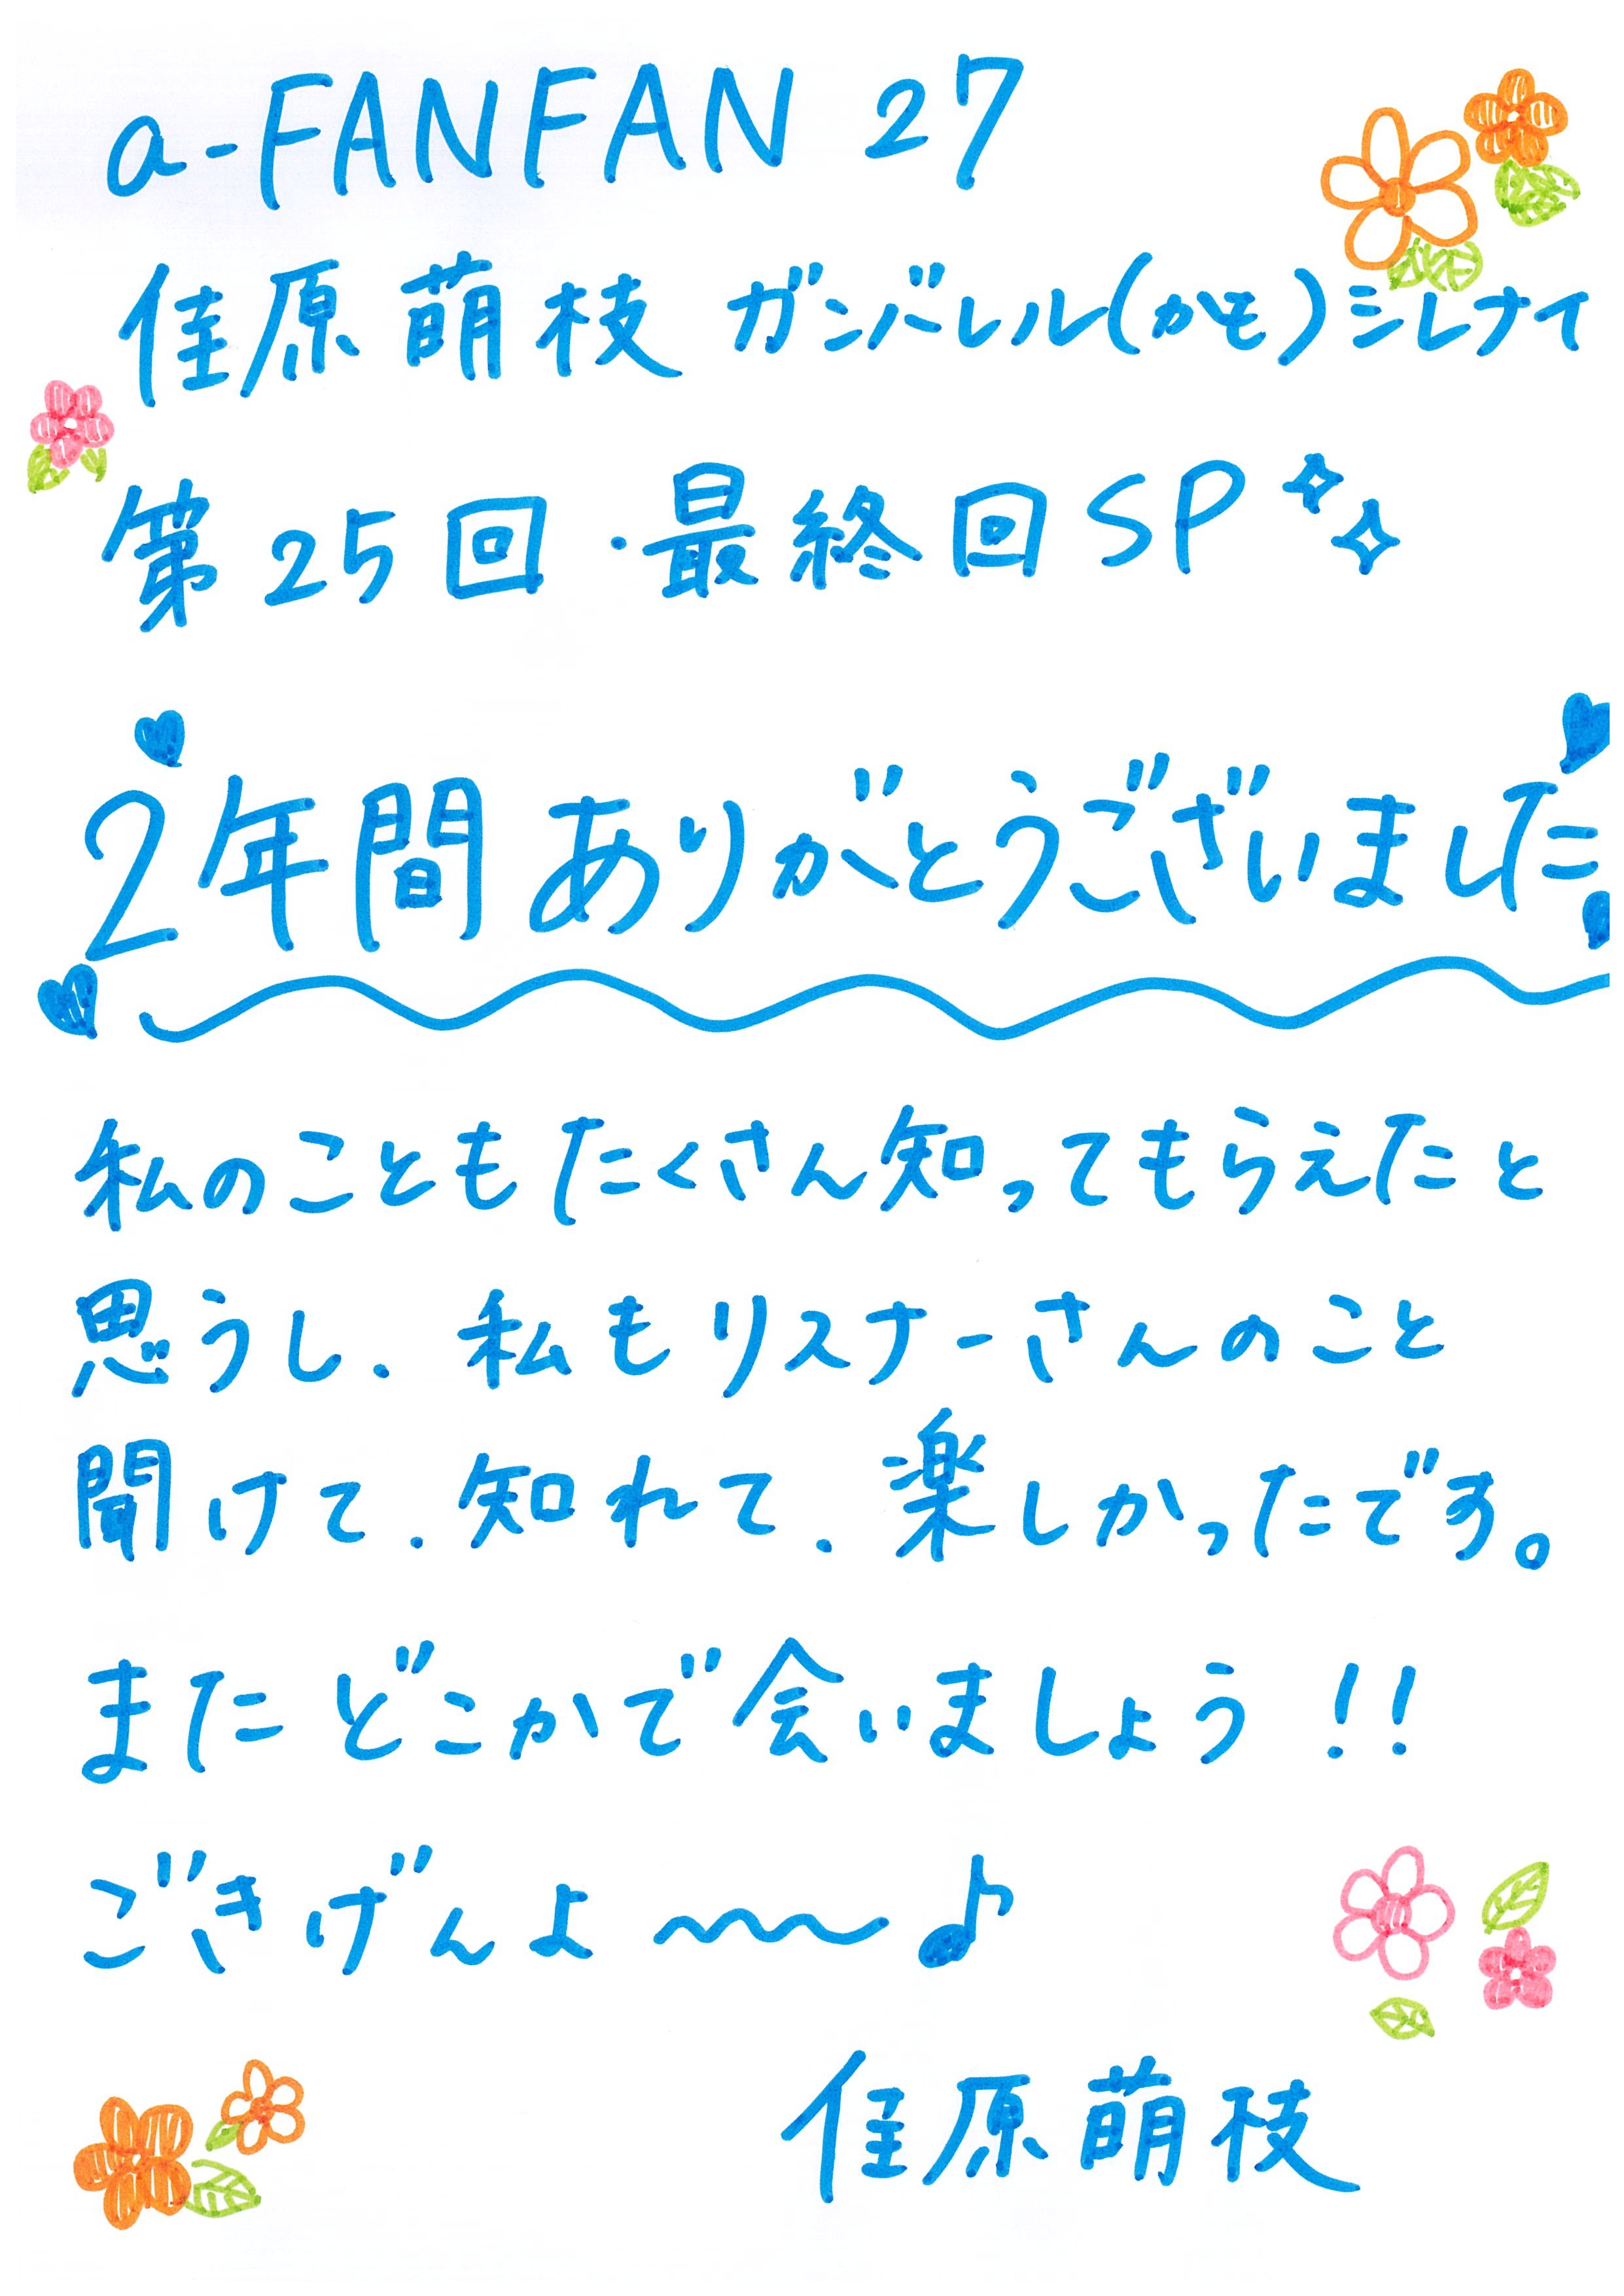 a-FANFAN 27
佳原萌枝 ガンバレル(かも)シレナイ
第25回・最終回SP
2年間ありがとうございました
私のこともたくさん知ってもらえたと
思うし、私もリスナーさんのこと
聞けて、知れて、楽しかったです。
またどこかで会いましょう!!
ごきげんよ〜〜♪
佳原萌枝